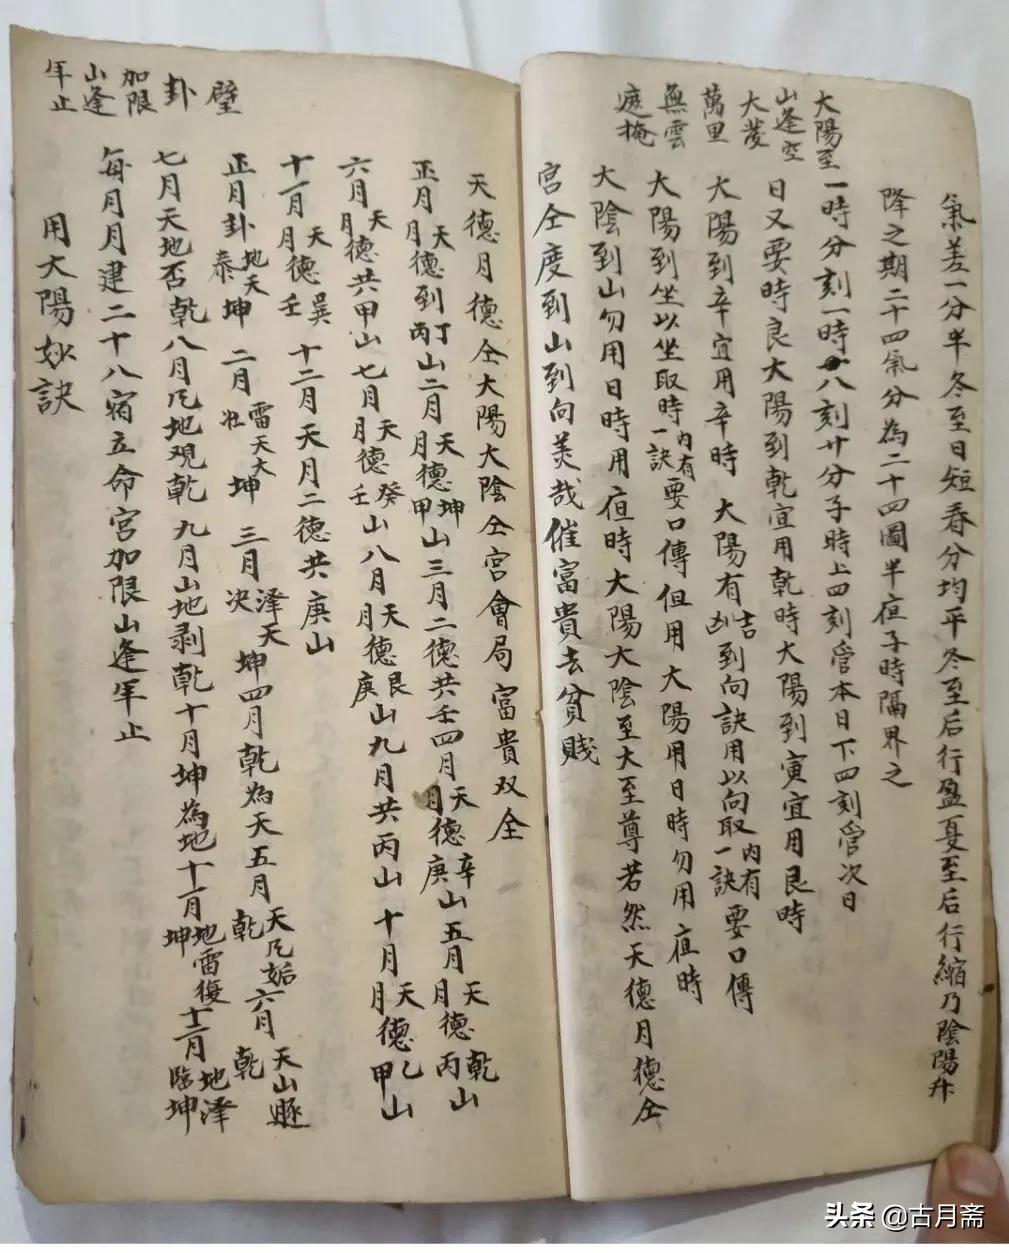 大陽至
山逢空
大發
萬里
無雲
遮掩
氣差一分半冬至日短春分均平冬至后行盈夏至后行縮乃陰陽升
降之期二十四氣分為二十四圖半夜子時隔界之
一時分刻一時八刻廿分子時上四刻管本日下四刻管次日
日又要時良大陽到乾宜用乾時大陽到寅宜用艮時
大陽到辛宜用辛時 大陽有吉凶到向訣用以向取一訣內有要口傳
大陽到坐以坐取時一訣內有要口傳但用大陽用日時勿用夜時
大陰到山勿用日時用夜時大陽大陰至大至尊若然天德月德仝
宮仝度到山到向美哉催富貴去貧賤
壁
卦
加限
山逢
年止
天德月德仝大陽大陰仝宮會局富貴双全
正月天月德到丁丙山二月天月德坤甲山三月二德共壬四月天月德辛庚山五月天月德乾丙山
六月天月德共甲山七月天月德癸壬山八月天月德艮庚山九月共丙山十月天月德乙甲山
十一月天月德巽壬 十二月天月二德共庚山
正月卦地天泰坤 二月雷天大壯坤 三月澤天决坤四月乾為天五月天凨姤乾六月天山遯乾
七月天地否乾八月凨地观乾九月山地剥乾十月坤為地十一月地雷復坤十二月地澤臨坤
每月月建二十八宿立命宮加限山逢年止
用大陽妙訣
头条 @古月斋